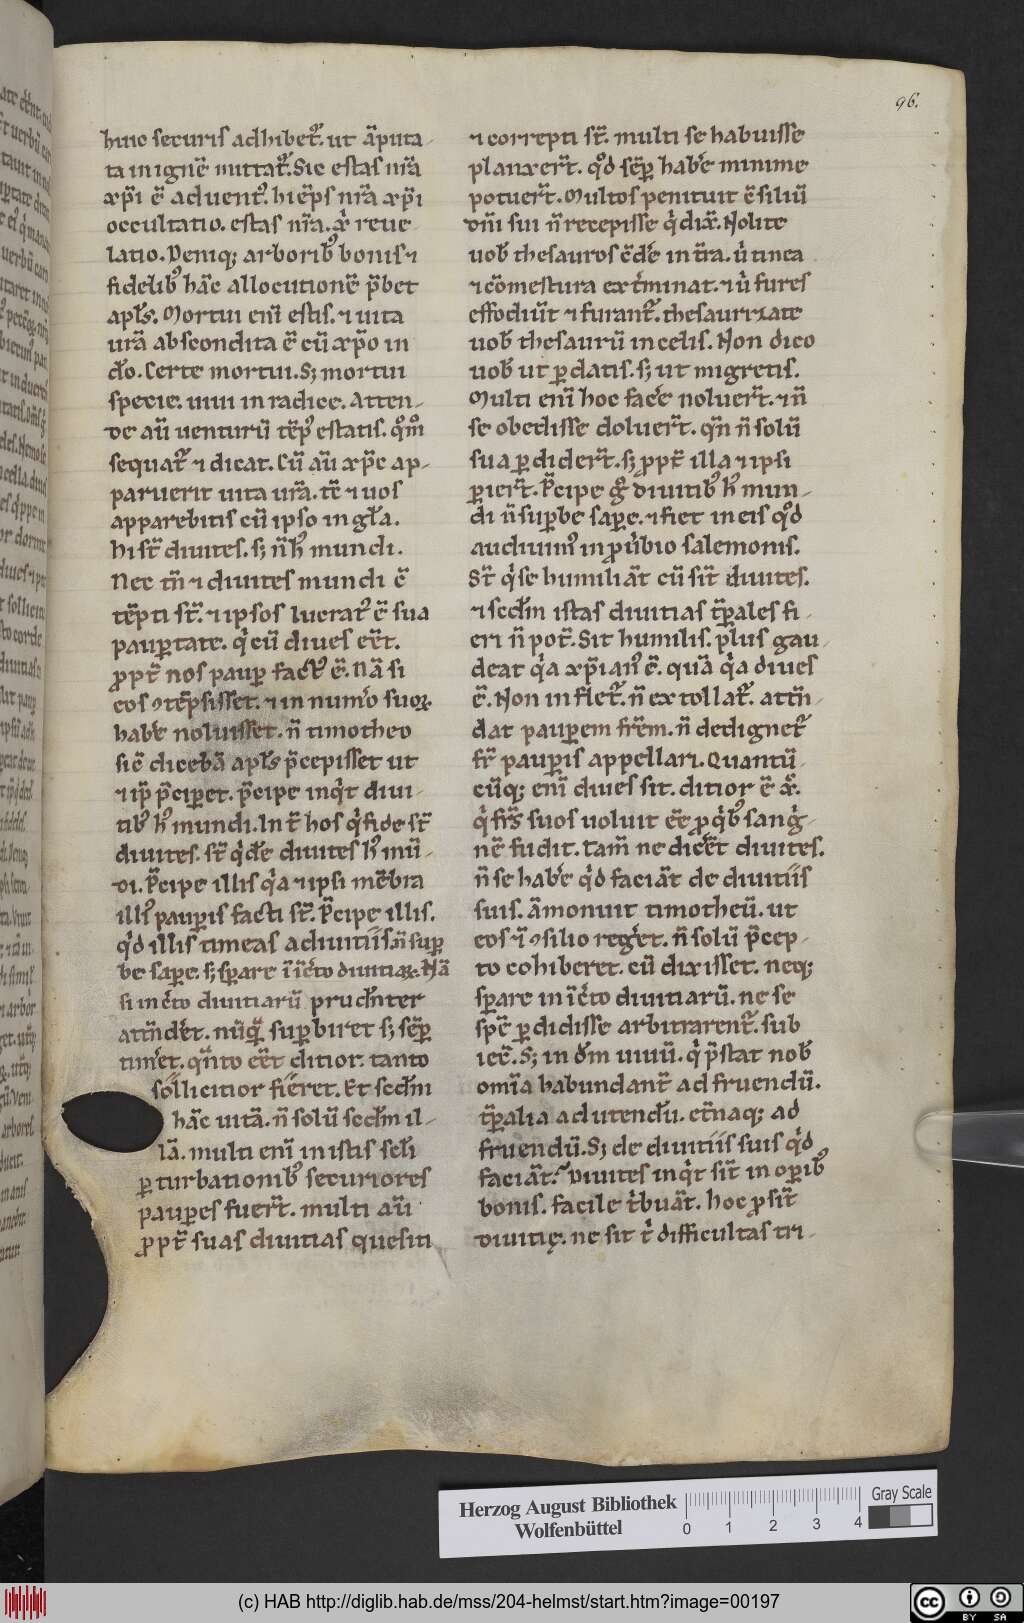 96.
hinc securis adhibet᷒. ut āputa-
ta in ignē mittat᷒. Sic estas nr̄a
xp̄i ē aduent᷒. hiēps nr̄a xp̄i
occultatio. estas nr̄a. xp̄i reue
latio. Deniq; arborib᷒ bonis ⁊
fidelib᷒ hāc allocutionē p̄bet
apl̄s. Mortui eni estis. ⁊ uita
urā abscondita ē cū xp̄o in
dō. Certe mortui. S; mortui
specie. uiui in radice. Atten-
de aū uenturū tēp᷒ estatis. qm̄
sequat᷒ ⁊ dicat. Cū aū xp̄c ap-
paruerit uita urā. tē ⁊ uos
apparebitis cū ipso in gl̄a.
hi st̄ diuites. s; n̄ h᷒ mundi.
Nec tn̄ ⁊ diuites mundi ē
tēpti st̄. ⁊ ipsos lucrat᷒ ē sua
paup̱tate. q̇ cū diues eēt.
ꝓpt̄ nos paup̱ fact᷒ ē. Nā si
eos ꝯtēpsisset. ⁊ in num̄o suoꝝ
hab̄e noluisset. n̄ timotheo
sic̄ dicebā apl̄s p̄cepisset ut
⁊ ip̄ p̄cip̱et. p̄cipe inq̇t diui-
tib᷒ h᷒ mundi. Int̄ hos q̇ fide st̄
diuites. st̄ q̇dē diuites h᷒ mū-
di. P̄cipe illis q̇a ⁊ ipsi mēbra
illi᷒ paup̱is facti st̄. P̄cipe illis.
q̇d illis timeas a diuitiis. n̄ sup̱
be sap̱e. s; sp̱are ī īc̄to diuitiaꝝ. Nā
si in c̄to diuitiarū prudn̄ter
attn̄dēt. nūq̄ sup̱biret s; sēp̱
timēt. qn̄to eēt ditior. tanto
sollicitior fieret. Et secd̄m
hāc uitā. n̄ solū secd̄m il-
lā. multi eni in istis sclī
p̱turbationib᷒ securiores
paup̱es fuer̄t. multi aū
ꝓpt̄ suas diuitias quesiti
⁊ correpti st̄. multi se habuisse
planxer̄t. qd̄ sēp̱ hab̄e minime
potuer̄t. Multos penituit ēsiliū
dn̄i sui n̄ recepisse q̇ dix̄. Nolite
uob̄ thesauros c̄dēe in t̄ra. u̇ tinea
⁊ c̄omestura ext̄minat. ⁊ u̇ fures
effodiūt ⁊ furant᷒. thesaurizate
uob̄ thesaurū in celis. Non dico
uob̄ ut p̱datis. s; ut migretis.
Multi eni hoc fac̄e noluer̄t. ⁊ n̄
se obedisse doluer̄t. qn̄ n̄ solū
sua p̱dider̄t. s; ꝓpt̄ illa ⁊ ipsi
p̱ier̄t. P̄cipe g᷒ diuitib᷒ h᷒ mun-
di n̄ sup̱be sap̱e. ⁊ fiet in eis qd̄
audiuim᷒ in ꝓu̇bio salemonis.
St̄ q̇ se humiliāt cū sīt diuites.
⁊ secd̄m istas diuitias tp̱ales fi-
eri n̄ pot̄. Sit humilis. plus gau-
deat q̇a xp̄ian᷒ ē. quā q̇a diues
ē. Non inflet᷒. n̄ extollat᷒. attn̄-
dat paup̱em fr̄em. n̄ dedignet᷒
fr̄ paup̱is appellari. Quantū-
cūq; eni diues sit. ditior ē xp̄c.
q̇ fr̄s suos uoluit ēē ꝓ q̇b᷒ sanġ-
nē fudit. Tam̄ ne dic̄ēt diuites.
n̄ se hab̄e q̇d faciāt de diuitiis
suis. āmonuit timotheū. ut
eos ī ꝯsilio reg̱et. n̄ solū p̄cep-
to cohiberet. cū dixisset. neq;
sp̱are in īc̄to diuitiarū. ne se
spē p̱didisse arbitrarent᷒. sub
iec̄. S; in dō̄m uiuū. q̇ p̄stat nob̄
om̄ia habundant̄ ad fruendū.
tp̱alia ad utendū. et̄naq; ad
fruendū. S; de diuitiis suis q̇d
faciāt? Diuites inq̇t sīt in op̱ib᷒
bonis. facile t̄buāt. hoc ꝓsīt
diuitię. ne sit t̄ difficultas tri-
Herzog August Bibliothek
Wolfenbüttel
0 1 2 3 4
Gray Scale
(c) HAB http://diglib.hab.de/mss/204-helmst/start.htm?image=00197
cc BY SA